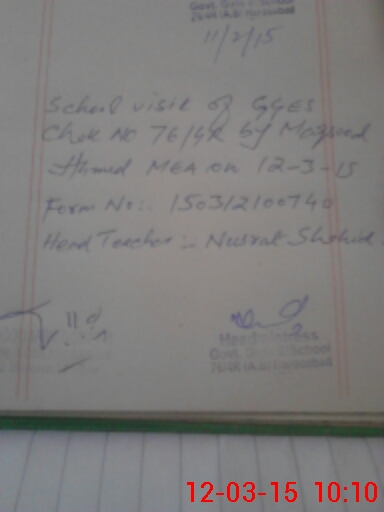 Govt. Girls E/School
11/2/15
School visit of GGES
Chak No 76/4R by Maqsood
Ahmed MEA on 12-3-15
Form No:- 150312100740
Head Teacher:- Nusrat Shahid.
Headmistress
Govt. Girls E/School
76/4R
12-03-15 10:10